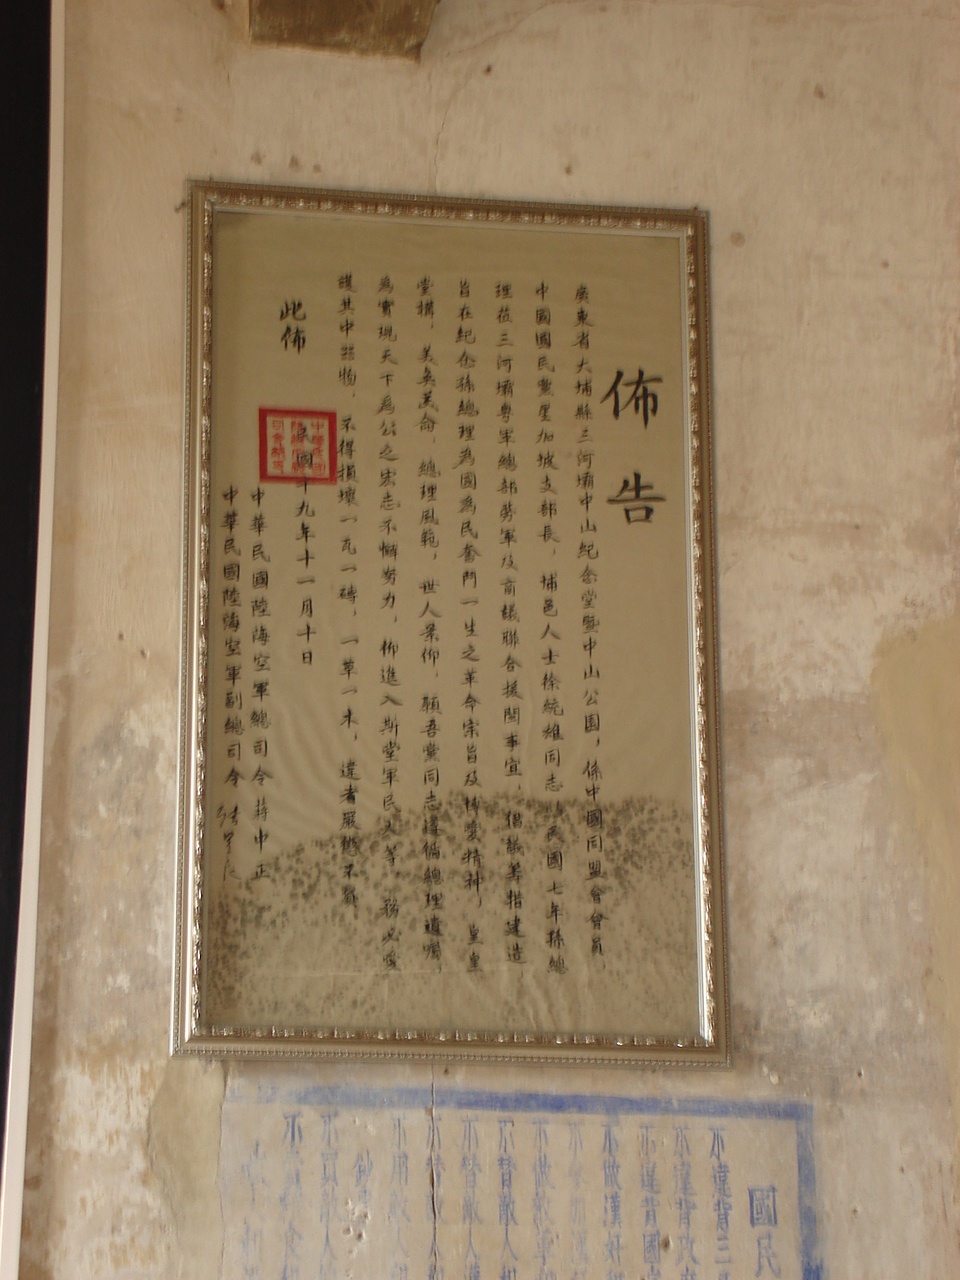 佈告
廣東省大埔縣三河壩中山紀念堂暨中山公園，係中國同盟會會員
中國國民黨星加坡支部長，埔邑人士徐統雄同志，民國七年孫總
理莅三河壩粵軍總部勞軍及商議聯合援閩事宜，倡議籌措建造，
旨在紀念孫總理為國為民奮鬥一生之革命宗旨及博愛精神，皇皇
堂構，美奐美侖，總理風範，世人景仰，願吾黨同志謹循總理遺囑，
為實現天下為公之宏志不懈努力，仰進入斯堂軍民人等，務必愛
護其中器物，不得損壞一瓦一磚，一草一木，違者嚴懲不貸
此佈
民國十九年十一月十日
中華民國陸海空軍總司令蔣中正
中華民國陸海空軍副總司令張學良
國民
不違背三
不違背政
不違背國
不做漢奸
不參加
不做敵
不替敵人
不替敵人
不替敵人
不用敵人
不買敵人
不